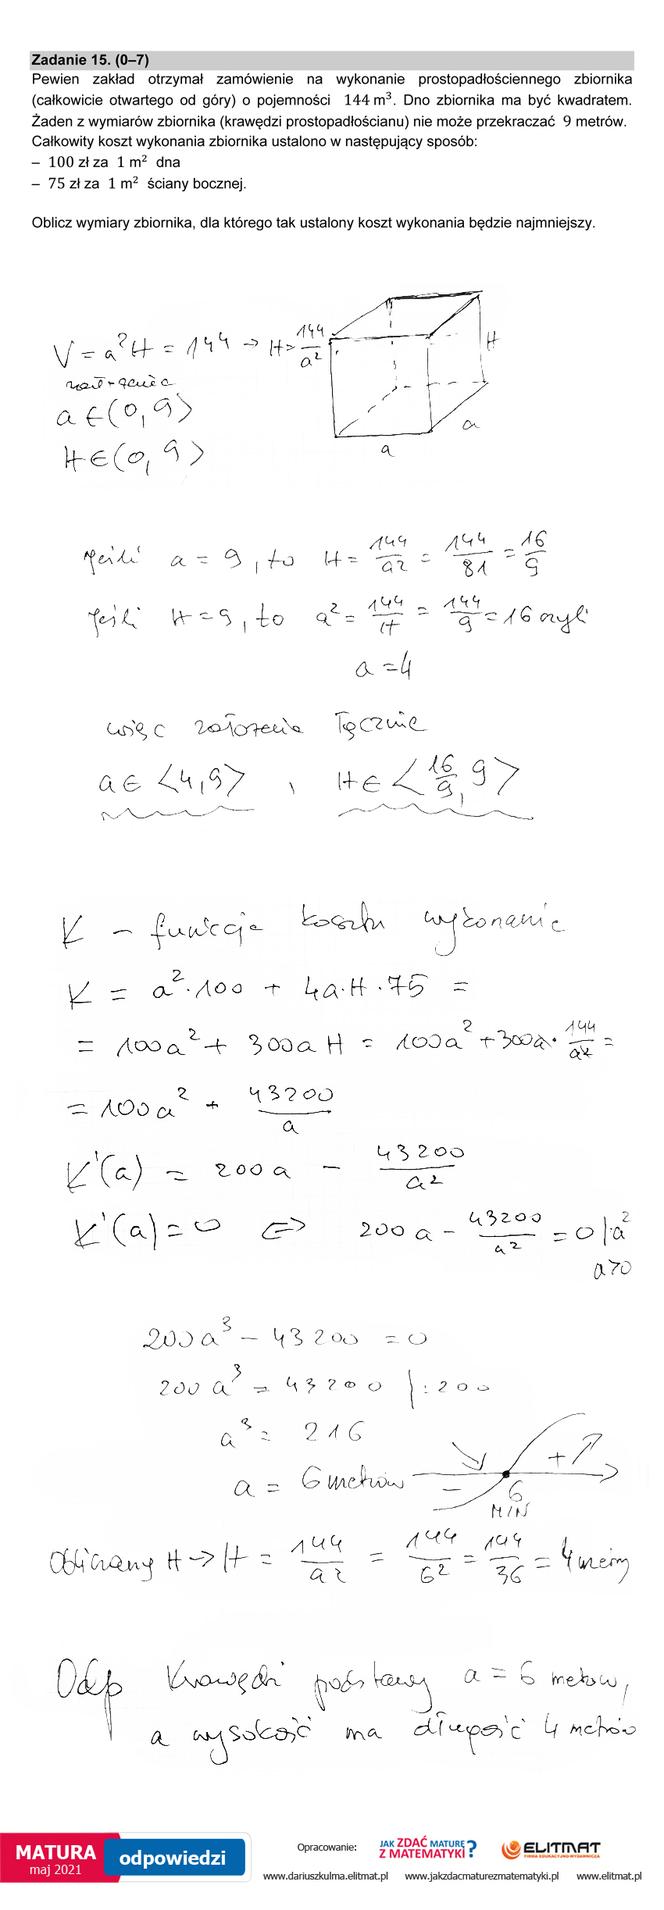 Zadanie 15. (0–7)
Pewien zakład otrzymał zamówienie na wykonanie prostopadłościennego zbiornika
(całkowicie otwartego od góry) o pojemności 144 m³. Dno zbiornika ma być kwadratem.
Żaden z wymiarów zbiornika (krawędzi prostopadłościanu) nie może przekraczać 9 metrów.
Całkowity koszt wykonania zbiornika ustalono w następujący sposób:
– 100 zł za 1 m² dna
– 75 zł za 1 m² ściany bocznej.
Oblicz wymiary zbiornika, dla którego tak ustalony koszt wykonania będzie najmniejszy.
V = a²H = 144 → H = 144/a²
założenia
a ∈ (0, 9⟩
H ∈ (0, 9⟩
H
a
a
jeśli a = 9, to H = 144/a² = 144/81 = 16/9
jeśli H = 9, to a² = 144/H = 144/9 = 16 czyli
a = 4
więc założenia łącznie
a ∈ ⟨4, 9⟩ , H ∈ ⟨16/9, 9⟩
K – funkcja kosztu wykonania
K = a²·100 + 4a·H·75 =
= 100a² + 300aH = 100a² + 300a · 144/a² =
= 100a² + 43200/a
K'(a) = 200a – 43200/a²
K'(a) = 0 ⇔ 200a – 43200/a² = 0 |·a²
a>0
200a³ – 43200 = 0
200a³ = 43200 |:200
a³ = 216
a = 6 metrów
– + 6
MIN
Obliczamy H → H = 144/a² = 144/6² = 144/36 = 4 metry
Odp Krawędź podstawy a = 6 metrów,
a wysokość ma długość 4 metrów
MATURA
maj 2021
odpowiedzi
Opracowanie:
JAK ZDAĆ MATURĘ
Z MATEMATYKI?
ELITMAT
FIRMA EDUKACYJNO-WYDAWNICZA
www.dariuszkulma.elitmat.pl www.jakzdacmaturezmatematyki.pl www.elitmat.pl